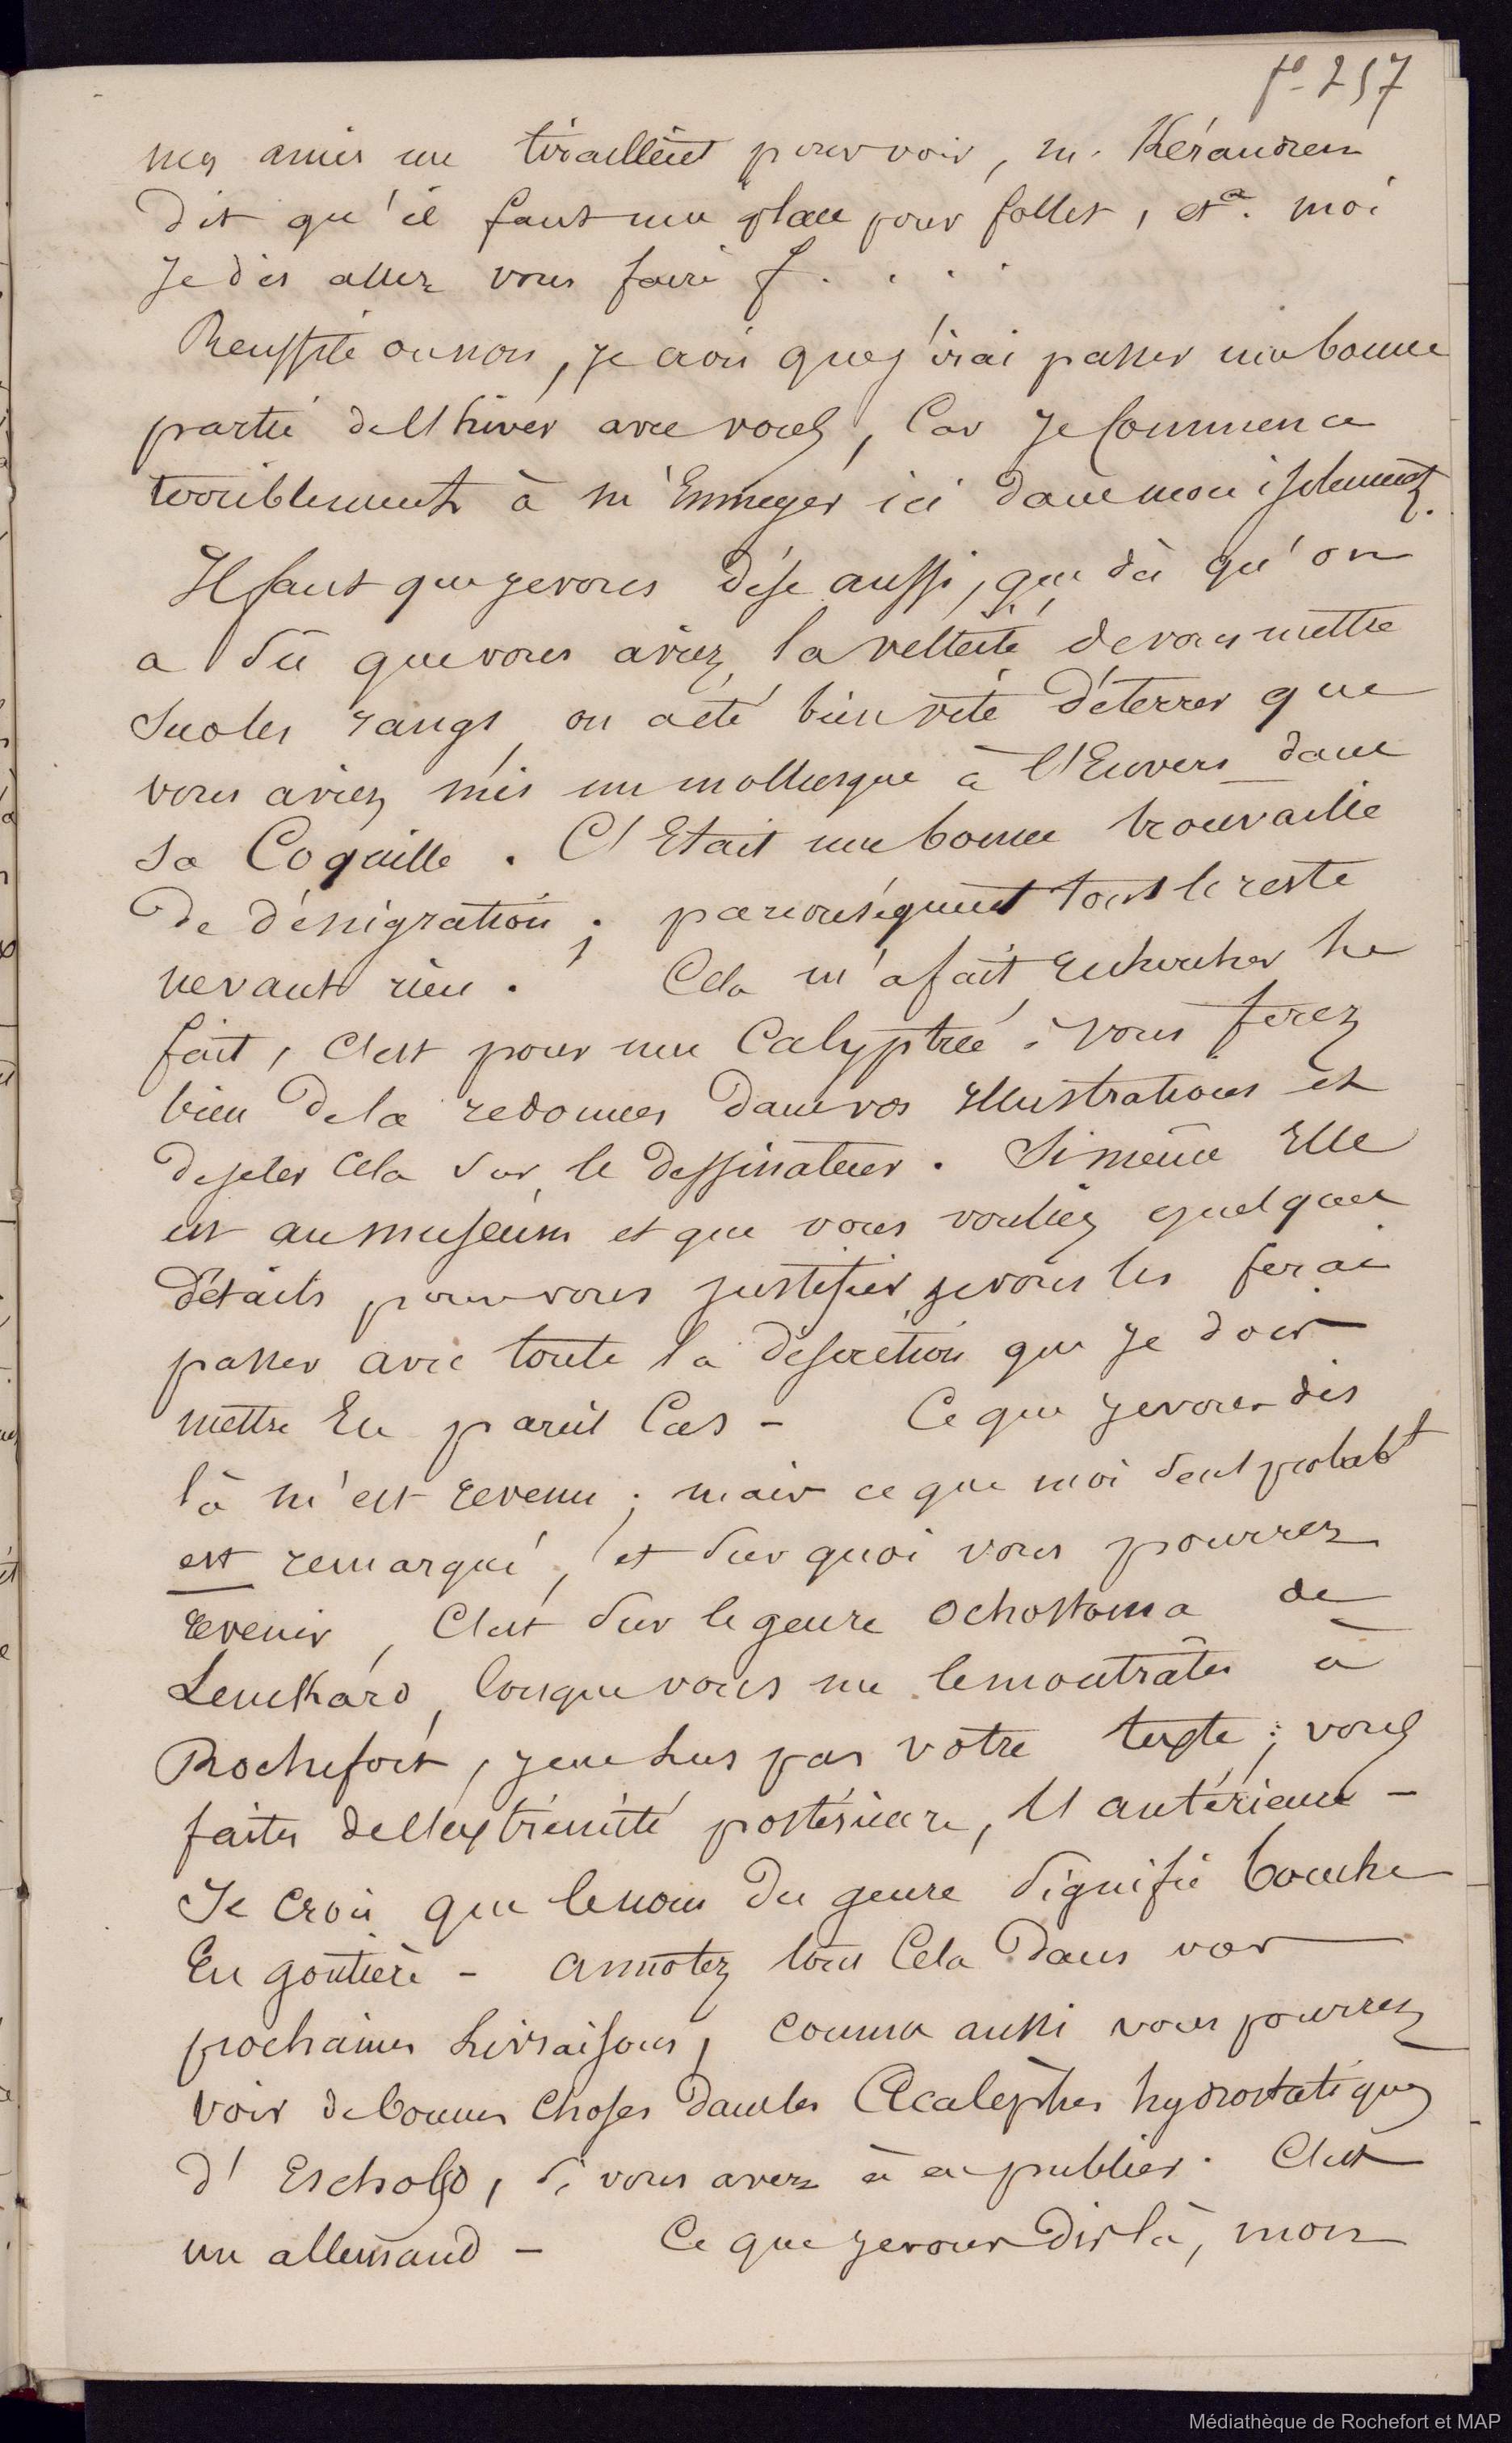 fo 257
mes amis me tiraillent pour voir, m. Kéraudren
dit qu'il faut une place pour follet, eta. moi
je dis allez vous faire f . . . .
Reussite ou non, je crois que j'irai passer une bonne
partie de l'hiver avec vous, Car je Commence
terriblement à m'Ennuyer ici dans mon isolement.
Il faut que je vous dise aussi, que dès qu'on
a sû que vous aviez la velleité de vous mettre
sur les rangs on a été bien vite déterrer que
vous aviez mis un mollusque à l'Envers dans
sa Coquille. C'Etait une bonne trouvaille
de dénigration ; par conséquent tout le reste
ne vaut rien. Cela m'a fait rechercher le
fait, c'est pour une Calyptrée. vous ferez
bien de la redonner dans vos illustrations et
de jeter cela sur le dessinateur. Si même Elle
est au muséum et que vous vouliez quelques
détails pour vous justifier je vous les ferai
passer avec toute la discrétion que je dois
mettre En pareil Cas - Ce que je vous dis
là m'est revenu ; mais ce que moi seul probabt
est remarqué, et sur quoi vous pourrez
revenir, C'est sur le genre ochostoma de
Leuckard, lorsque vous me le montrâtes à
Rochefort, je ne lus pas votre texte ; vous
faites de l'extrémité postérieure, l'antérieure -
Je crois que le nom du genre signifie bouche
En goutière - annotez tout Cela dans vos
prochaines Livraisons, comme aussi vous pourrez
voir de bonnes choses dans les Acalèphes hydrostatiques
d'Escholgd, si vous avez à en publier. C'est
un allemand - Ce que je vous dis là, mon
Médiathèque de Rochefort et MAP